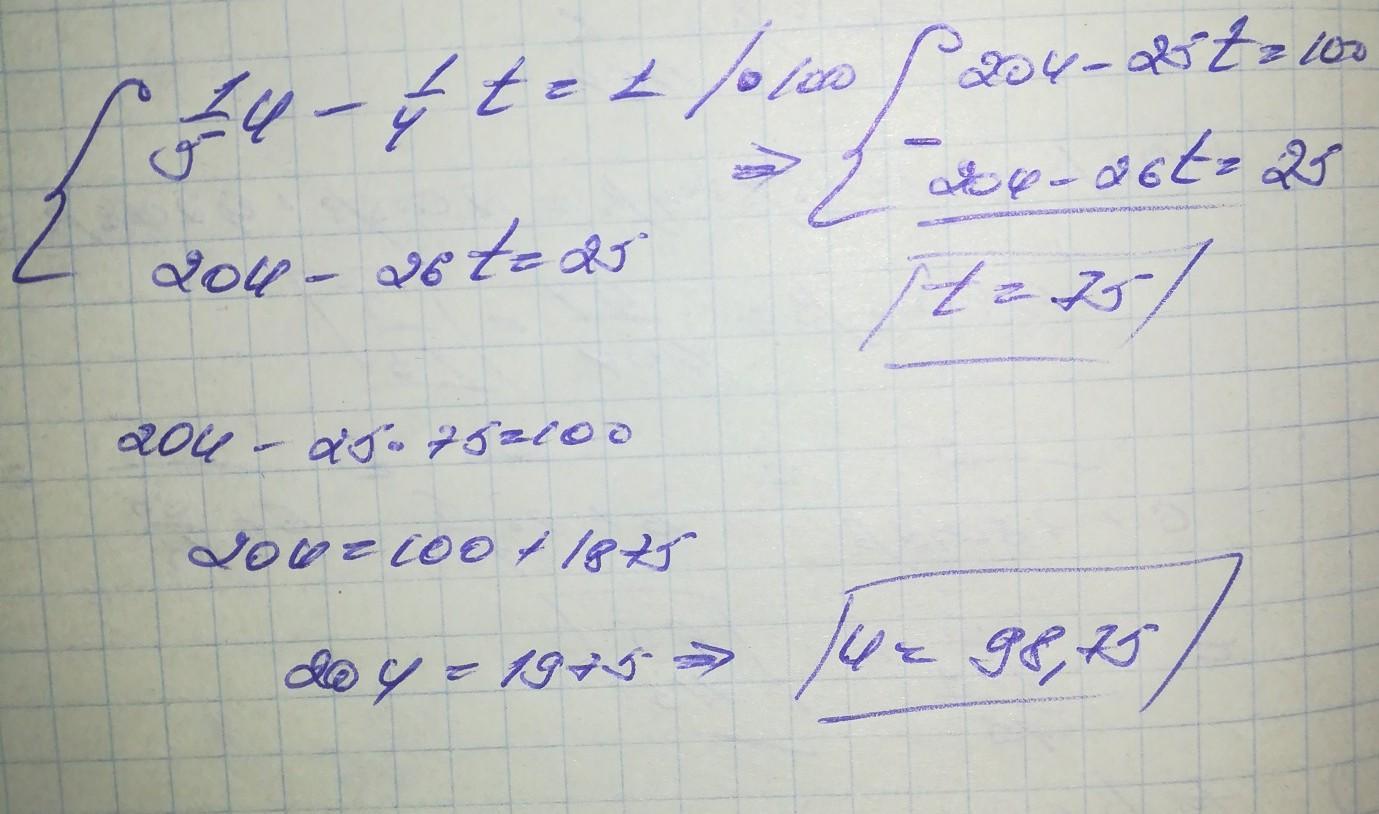 1/5 u - 1/4 t = 1 / • 100
20u - 26t = 25
⇒
20u - 25t = 100
- 20u - 26t = 25
t = 75
20u - 25 • 75 = 100
20u = 100 + 1875
20u = 1975 ⇒ u = 98,75